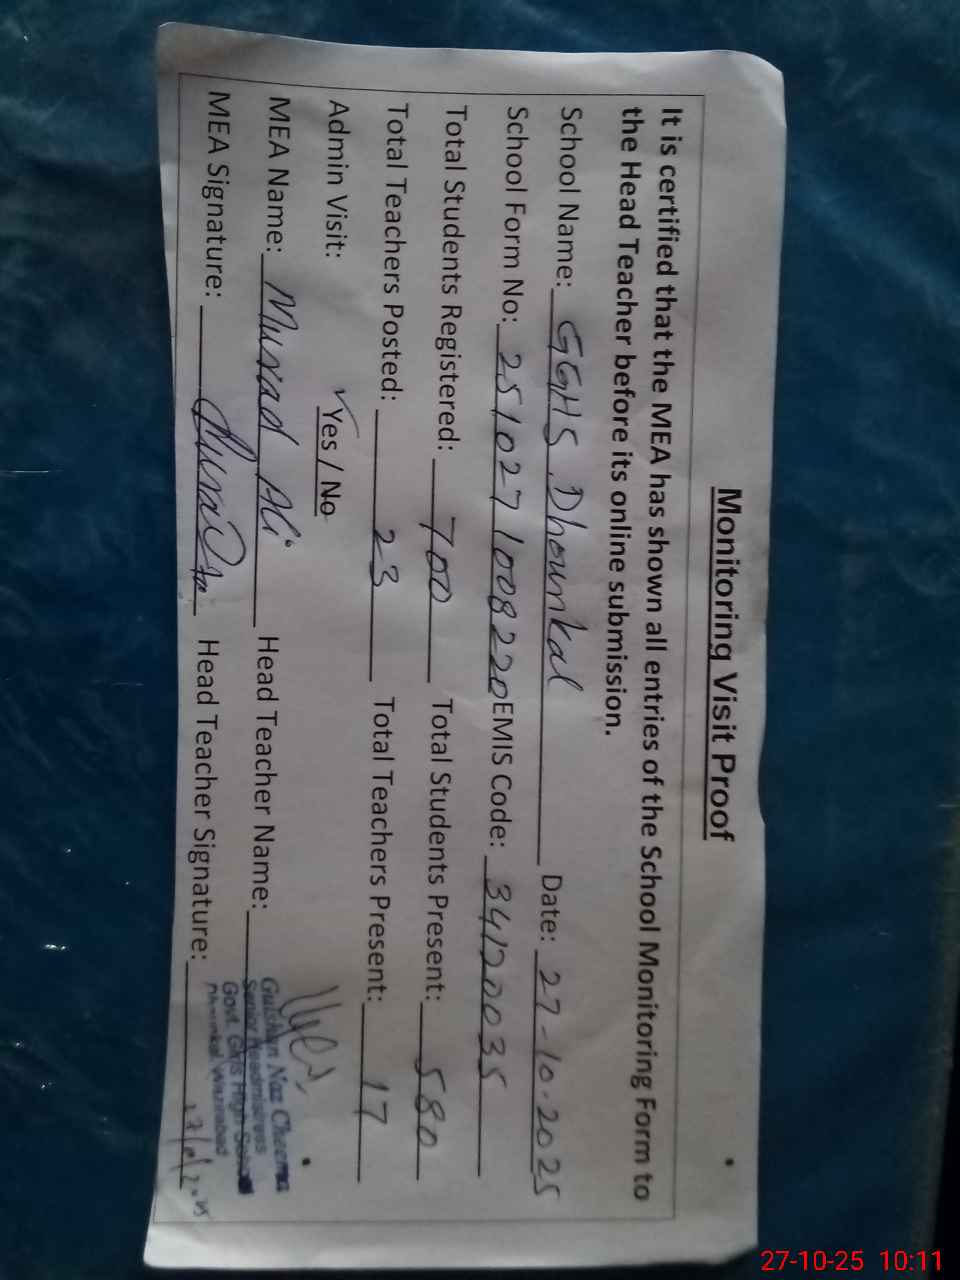 Monitoring Visit Proof
It is certified that the MEA has shown all entries of the School Monitoring Form to
the Head Teacher before its online submission.
School Name: GGHS Dhounkal Date: 27-10-2025
School Form No: 25102710082 20 EMIS Code: 34120035
Total Students Registered: 700 Total Students Present: 580
Total Teachers Posted: 23 Total Teachers Present: 17
Admin Visit: ✓Yes / No
MEA Name: Murad Ali Head Teacher Name:
MEA Signature: Head Teacher Signature:
Gulshan Naz Cheema
Senior Headmistress
Govt. Girls High School
Dhounkal, Wazirabad
27-10-25 10:11